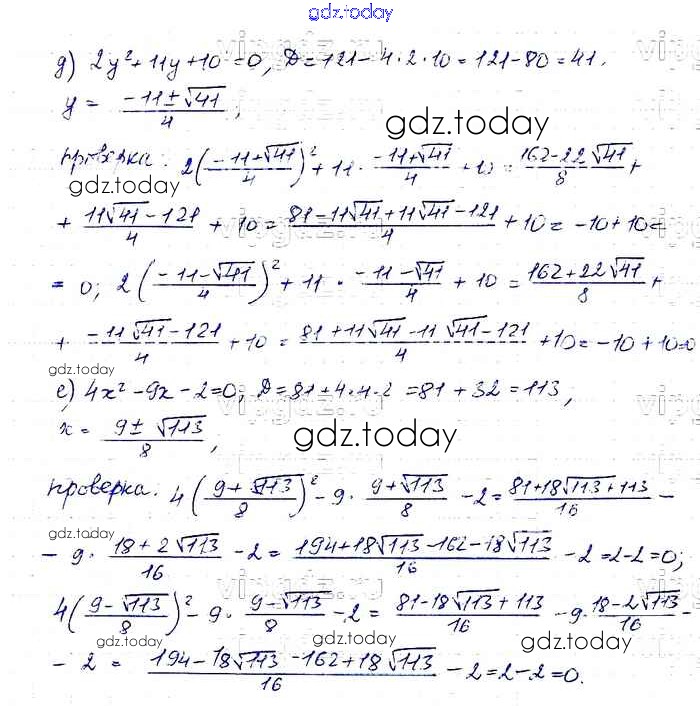 gdz.today
д) 2y² + 11y + 10 = 0, D = 121 - 4·2·10 = 121 - 80 = 41.
y = (-11 ± √41)/4;
gdz.today
проверка: 2((-11+√41)/4)² + 11 · (-11+√41)/4 + 10 = (162-22√41)/8 +
gdz.today
+ (11√41 - 121)/4 + 10 = (81 - 11√41 + 11√41 - 121)/4 + 10 = -10 + 10 =
= 0; 2((-11-√41)/4)² + 11 · (-11-√41)/4 + 10 = (162+22√41)/8 +
+ (-11√41 - 121)/4 + 10 = (81 + 11√41 - 11√41 - 121)/4 + 10 = -10 + 10 = 0
gdz.today
е) 4x² - 9x - 2 = 0; D = 81 + 4·4·2 = 81 + 32 = 113,
x = (9 ± √113)/8,
gdz.today
проверка. 4((9+√113)/8)² - 9 · (9+√113)/8 - 2 = (81+18√113+113)/16 -
gdz.today
- 9 · (18+2√113)/16 - 2 = (194+18√113-162-18√113)/16 - 2 = 2-2 = 0;
4((9-√113)/8)² - 9 · (9-√113)/8 - 2 = (81-18√113+113)/16 - 9 · (18-2√113)/16 -
gdz.today gdz.today
- 2 = (194-18√113-162+18√113)/16 - 2 = 2-2 = 0.